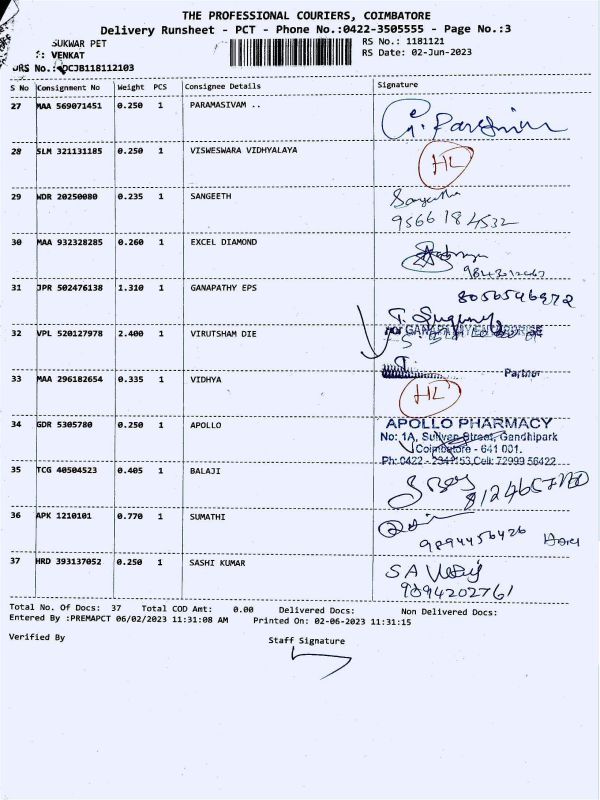 THE PROFESSIONAL COURIERS, COIMBATORE
Delivery Runsheet - PCT - Phone No.:0422-3505555 - Page No.:3
SUKWAR PET
: VENKAT
RS No.: 1181121
RS Date: 02-Jun-2023
DRS No.: DCJB118112103
S No Consignment No Weight PCS Consignee Details Signature
27 MAA 569071451 0.250 1 PARAMASIVAM ..
28 SLM 321131185 0.250 1 VISWESWARA VIDHYALAYA HL
29 WDR 20250080 0.235 1 SANGEETH
9566184532
30 MAA 932328285 0.260 1 EXCEL DIAMOND
31 JPR 502476138 1.310 1 GANAPATHY EPS 8056546972
32 VPL 520127978 2.400 1 VIRUTSHAM DIE
Partner
33 MAA 296182654 0.335 1 VIDHYA HL
34 GDR 5305780 0.250 1 APOLLO APOLLO PHARMACY
No: 1A, Sullivan Street, Gandhipark
Coimbatore - 641 001.
Ph: 0422 - 2341153, Cell: 72999 56422
35 TCG 40504523 0.405 1 BALAJI
36 APK 1210101 0.770 1 SUMATHI
9894456426
37 HRD 393137052 0.250 1 SASHI KUMAR
9894202761
Total No. Of Docs: 37 Total COD Amt: 0.00 Delivered Docs: Non Delivered Docs:
Entered By :PREMAPCT 06/02/2023 11:31:08 AM Printed On: 02-06-2023 11:31:15
Verified By Staff Signature